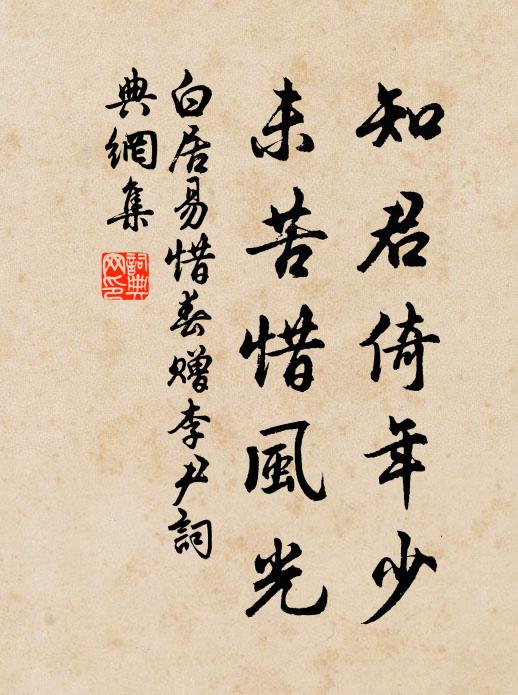 知君倚年少
未苦惜風光
白居易惜春贈李尹詞
典網集
詞典
网印